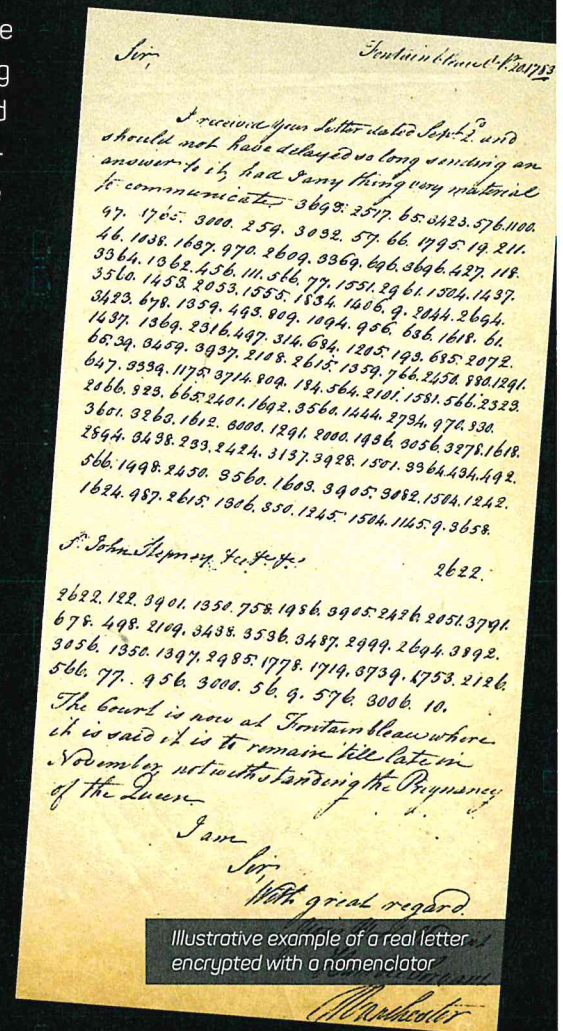 e
g
d
Sir,
Fontainbleau Oct. 20 1783
I received your Letter dated Sept. 2d and
should not have delayed so long sending an
answer to it, had I any thing very material
to communicate. 3693. 2517. 65. 3423. 576. 1100.
97. 1705. 3000. 259. 3032. 57. 66. 1795. 19. 211.
46. 1038. 1637. 970. 2609. 3369. 696. 3696. 427. 118.
3364. 1362. 456. 111. 566. 77. 1551. 2961. 1504. 1437.
3560. 1453. 2053. 1555. 1834. 1406. 9. 2044. 2694.
3423. 678. 1359. 493. 809. 1094. 956. 636. 1618. 61.
1437. 1369. 2316. 497. 314. 684. 1205. 193. 685. 2072.
65. 39. 3459. 3937. 2108. 2615. 1359. 766. 2450. 880. 1291.
647. 3339. 1175. 3714. 809. 184. 564. 2101. 1581. 566. 2323.
2066. 923. 665. 2401. 1692. 3560. 1444. 2734. 970. 330.
3601. 3263. 1612. 3000. 1291. 2000. 1936. 3056. 3278. 1618.
2894. 3438. 233. 2424. 3137. 3928. 1501. 3364. 434. 492.
566. 1498. 2450. 3560. 1603. 3905. 3082. 1504. 1242.
1624. 987. 2615. 1306. 350. 1245. 1504. 1145. 9. 3658.
Sr. John Stepney
2622.
2622. 122. 3901. 1350. 758. 1986. 3905. 2426. 2051. 3791.
678. 498. 2109. 3438. 3536. 3487. 2999. 2694. 3892.
3056. 1350. 1397. 2985. 1778. 1719. 3739. 1753. 2126.
566. 77. 956. 3000. 56. 9. 576. 3006. 10.
The Court is now at Fontainbleau where
it is said it is to remain till late in
November, notwithstanding the Pregnancy
of the Queen.
I am
Sir,
With great regard.
Illustrative example of a real letter
encrypted with a nomenclator
Manchester